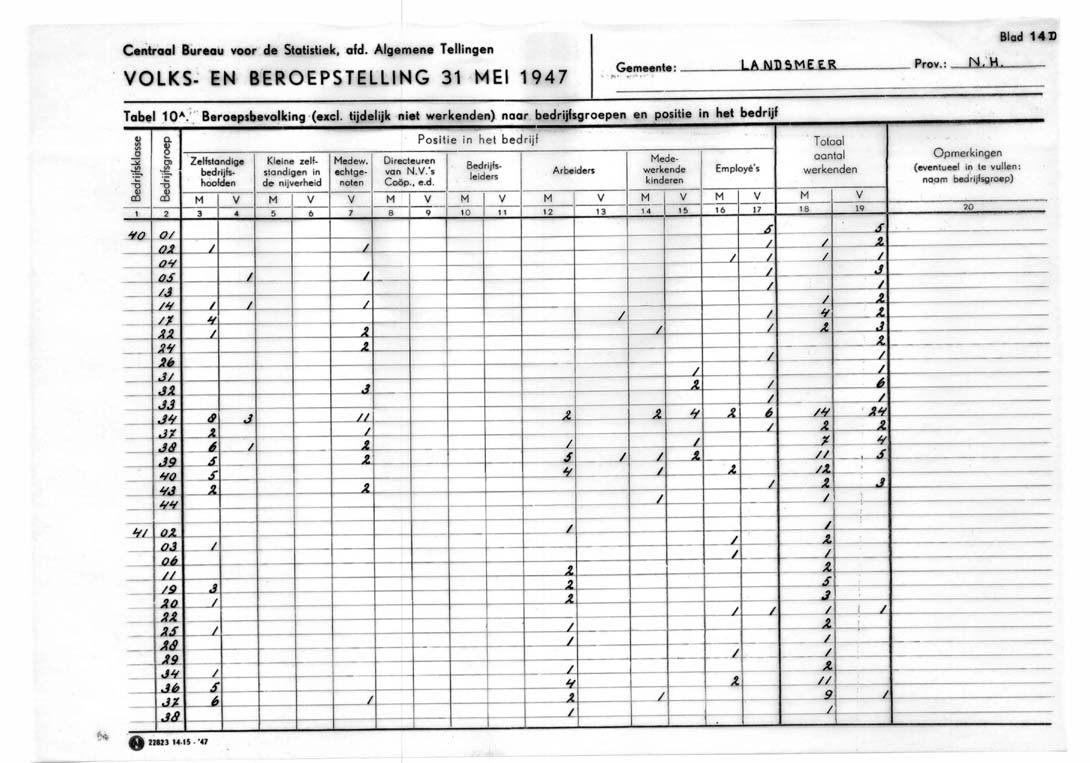 Blad 14D
Centraal Bureau voor de Statistiek, afd. Algemene Tellingen
VOLKS- EN BEROEPSTELLING 31 MEI 1947
Gemeente: LANDSMEER Prov.: N.H.
Tabel 10A. Beroepsbevolking (excl. tijdelijk niet werkenden) naar bedrijfsgroepen en positie in het bedrijf
Bedrijfsklasse
Bedrijfsgroep
Positie in het bedrijf
Zelfstandige bedrijfs-hoofden
Kleine zelf-standigen in de nijverheid
Medew. echtge-noten
Directeuren van N.V.'s Coöp., e.d.
Bedrijfs-leiders
Arbeiders
Mede-werkende kinderen
Employé's
Totaal aantal werkenden
Opmerkingen (eventueel in te vullen: naam bedrijfsgroep)
M V M V V M V M V M V M V M V M V
1 2 3 4 5 6 7 8 9 10 11 12 13 14 15 16 17 18 19 20
40 01 5 5
02 1 1 1 1 2
04 1 1 1 1
05 1 1 1 3
13 1 1
14 1 1 1 1 2
17 4 1 1 4 2
22 1 2 1 1 2 3
24 2 2
26 1 1
31 1 1
32 3 2 1 6
33 1 1
34 8 3 11 2 2 4 2 6 14 24
37 2 1 1 2 2
38 6 1 2 1 1 7 4
39 5 2 5 1 1 2 11 5
40 5 4 1 2 12
43 2 2 1 2 3
44 1 1
41 02 1 1
03 1 1 2
06 1 1
11 2 2
19 3 2 5
20 1 2 3
22 1 1 1 1
25 1 1 2
28 1 1
29 1 1
34 1 1 2
36 5 4 2 11
37 6 1 2 1 9 1
38 1 1
N 22823 14-15 - '47